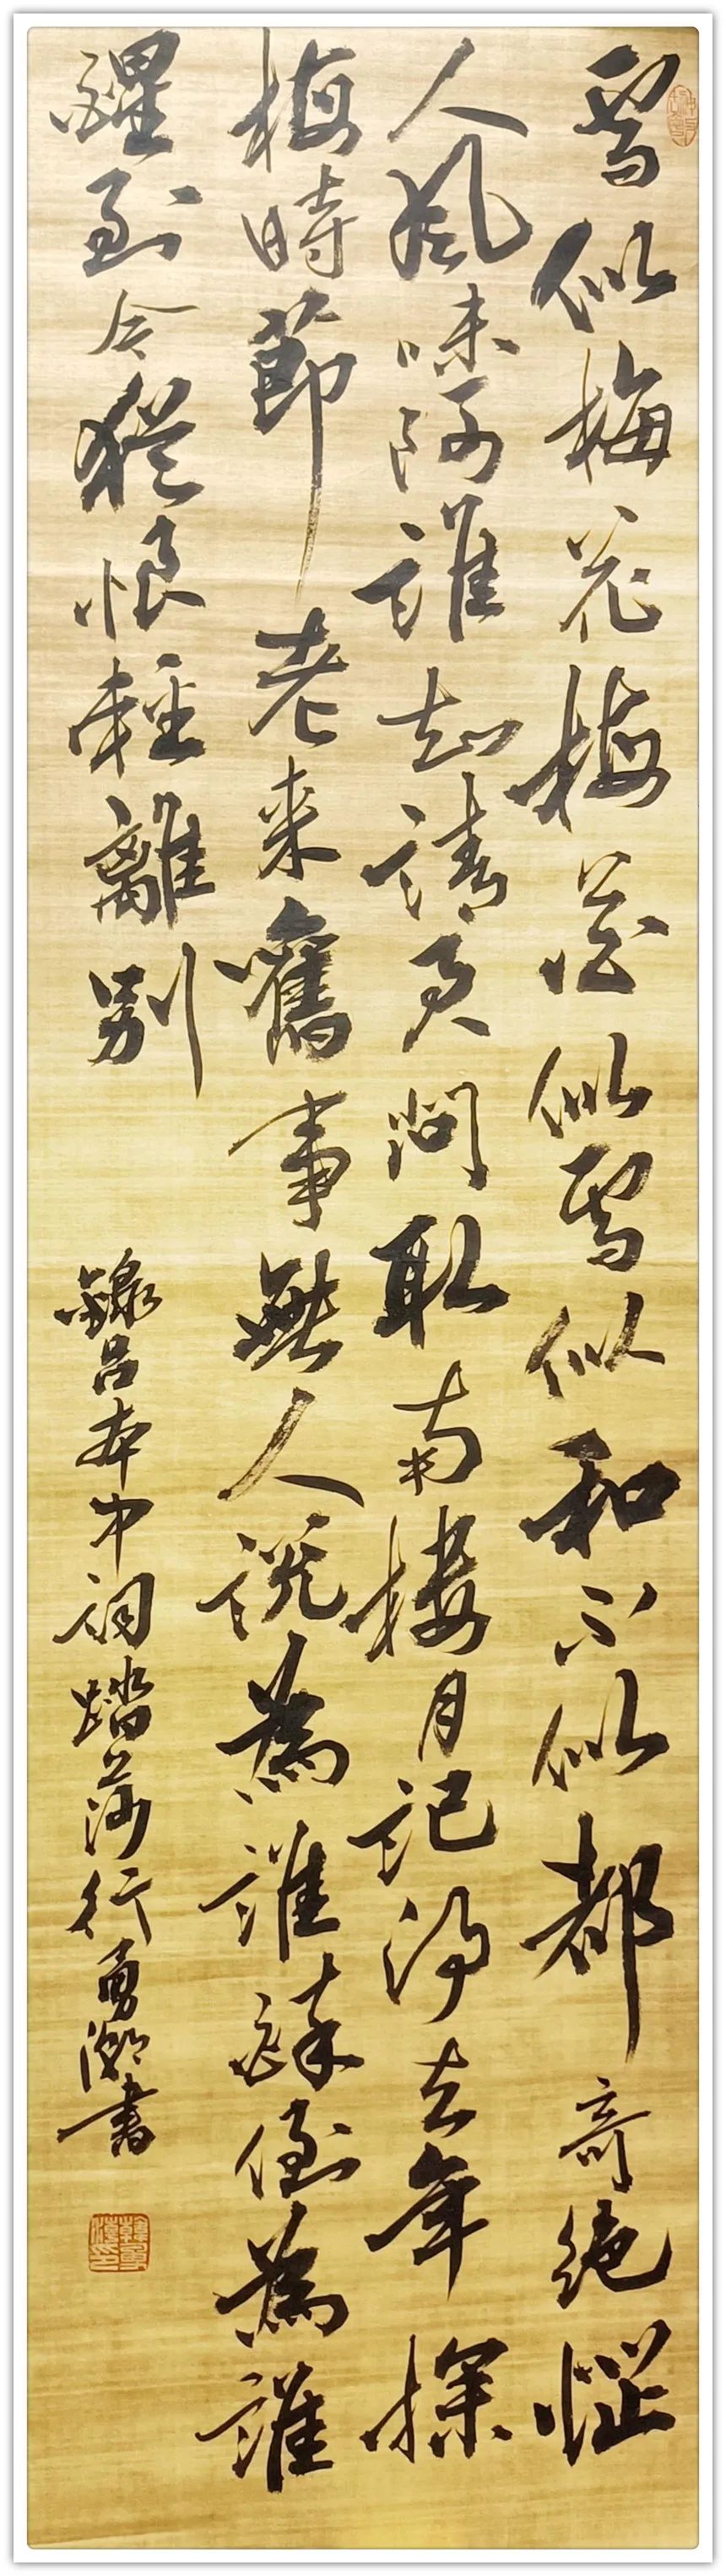 雪似梅花梅花似雪似和不似都奇絕惱
人風味阿誰知請君問取南樓月記得去年探
梅時節老來舊事無人說為誰醉倒為誰
醒到今猶恨輕離別
錄呂本中詞踏莎行勇書